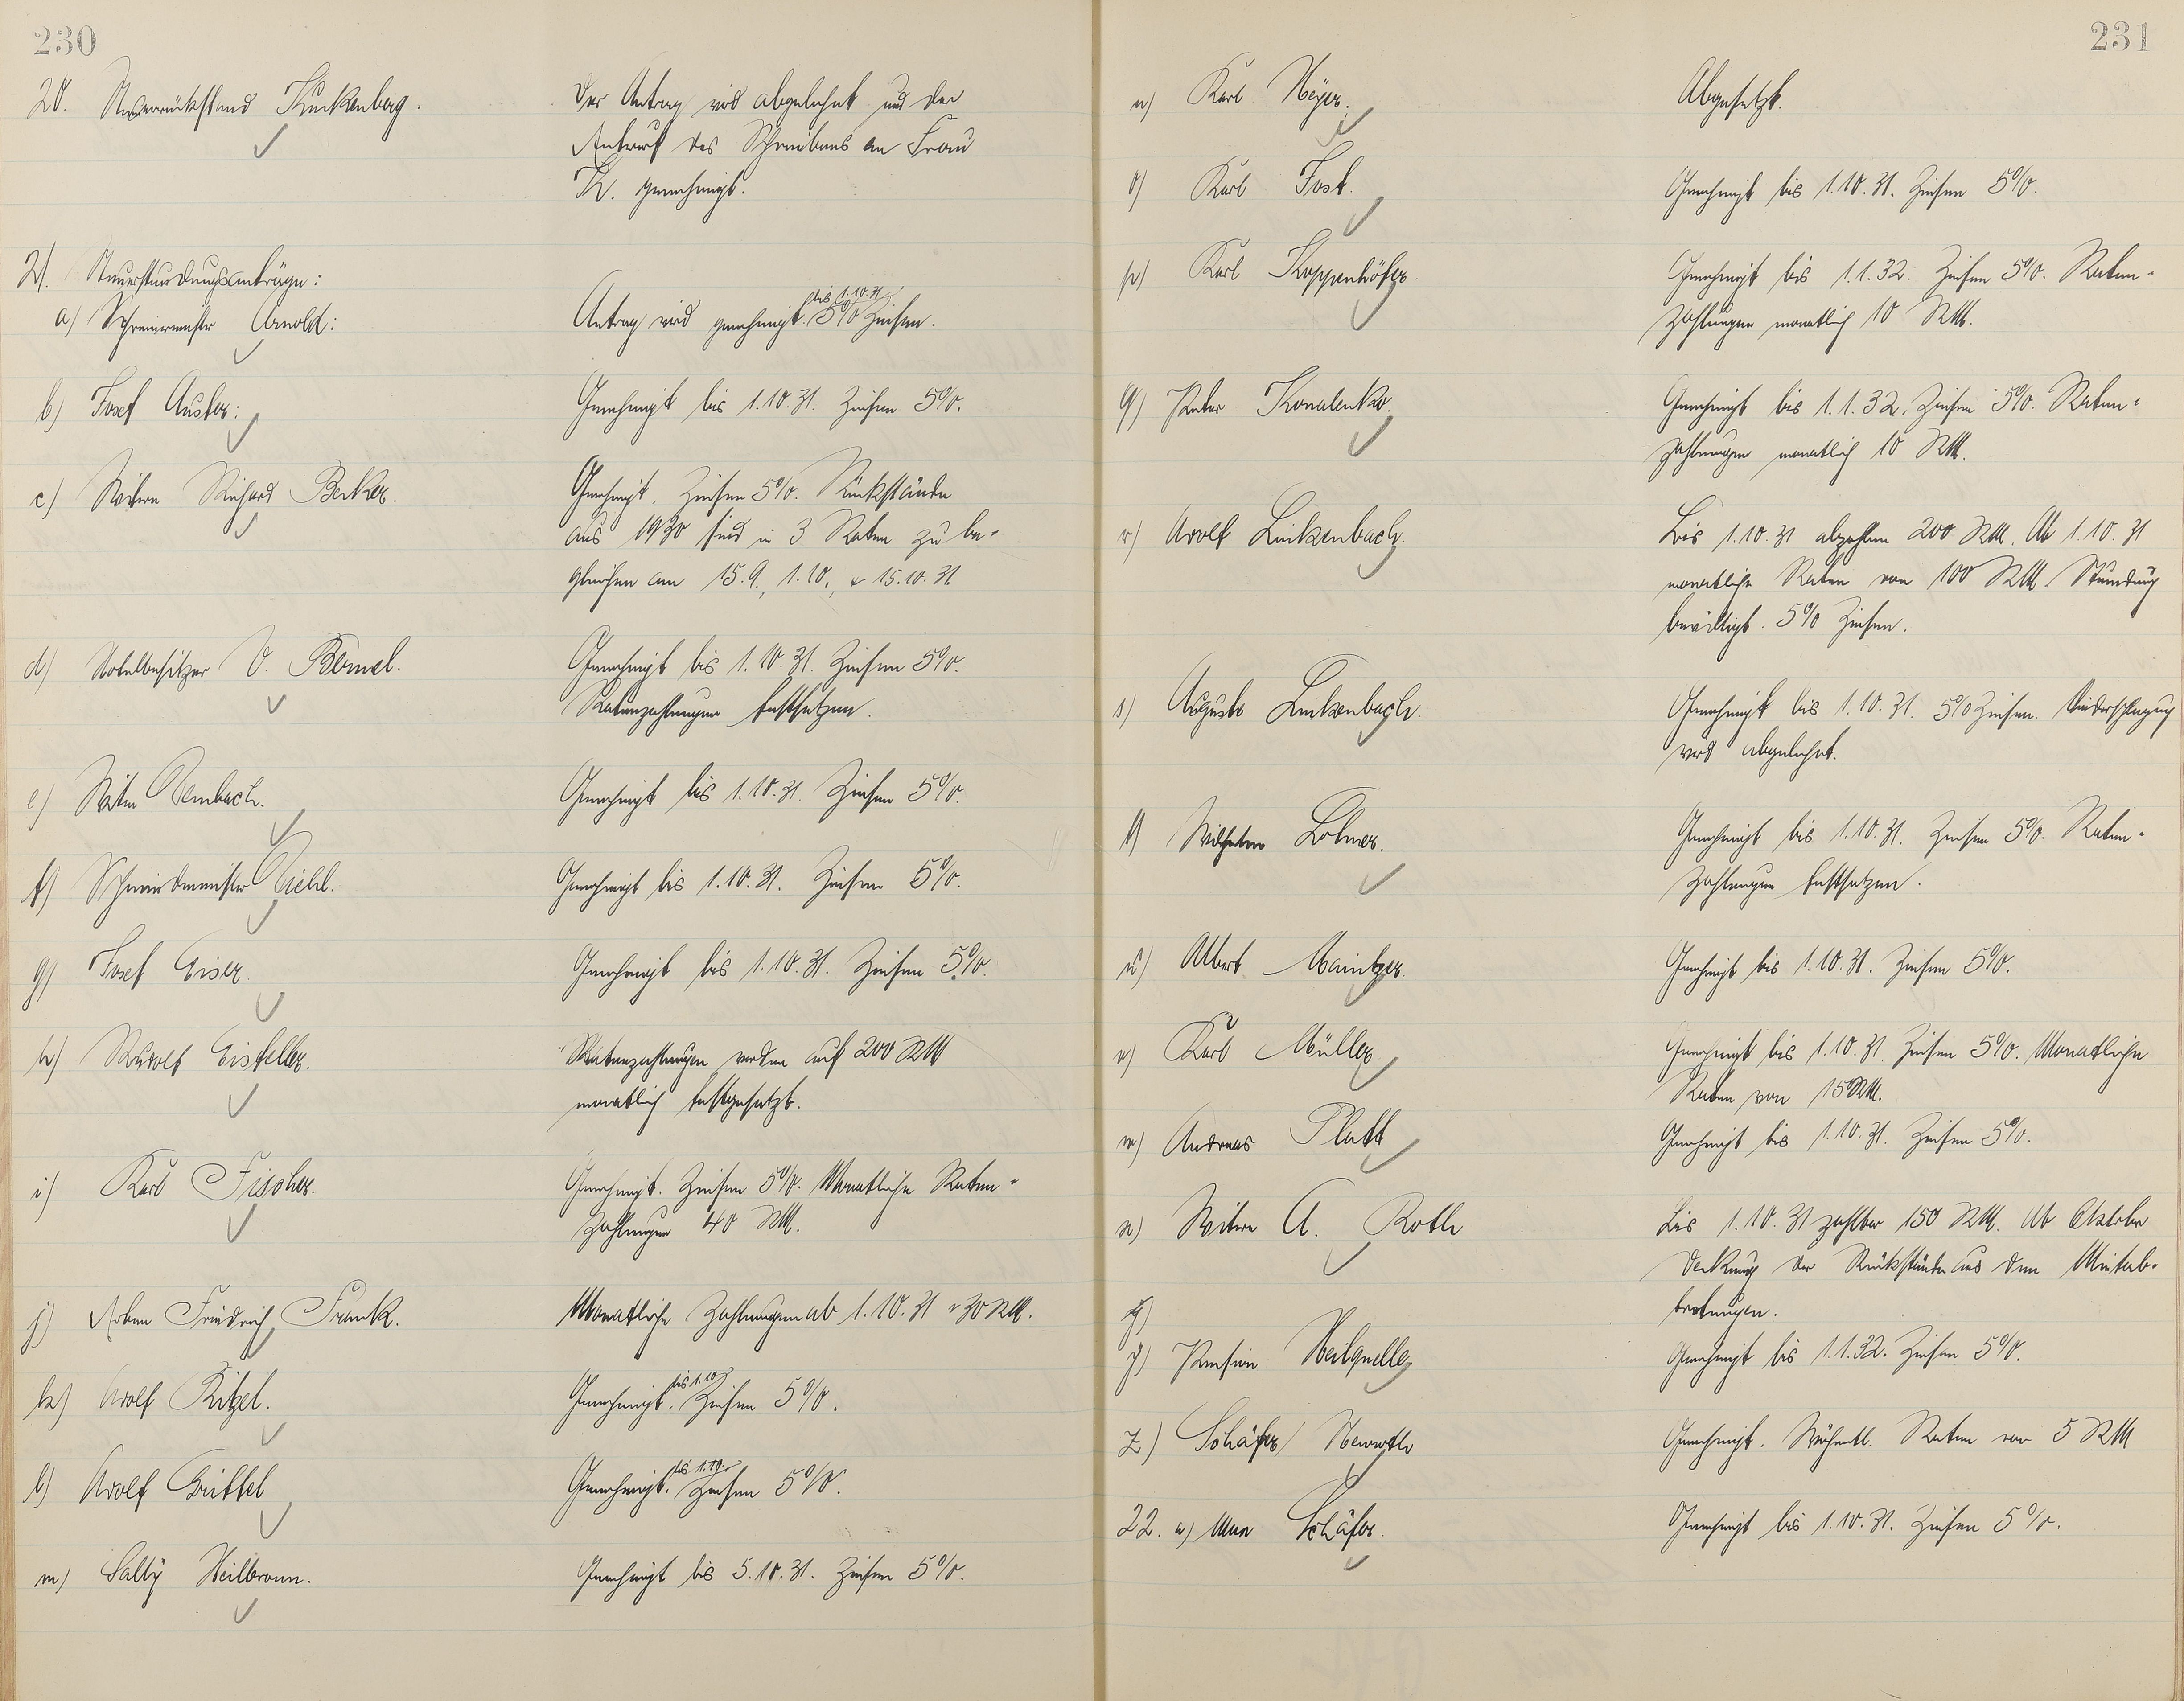 230
20. Steuerrückstand Kuckenberg.
Der Antrag wird abgelehnt und der
Entwurf des Schreibens an Frau
K. genehmigt.
21. Steuerstundungsanträge:
a) Schreinermeister Arnold:
Antrag wird genehmigt bis 1.10.31. 5% Zinsen.
b) Josef Auster:
Genehmigt bis 1.10.31. Zinsen 5%.
c) Witwe Richard Becker.
Genehmigt. Zinsen 5%. Rückstände
aus 1930 sind in 3 Raten zu be-
gleichen am 15.9., 1.10., & 15.10.31
d) Hotelbesitzer V. Bömel.
Genehmigt bis 1.10.31. Zinsen 5%.
Ratenzahlungen festsetzen.
e) Witwe Dembach.
Genehmigt bis 1.10.31. Zinsen 5%.
f) Schneidermeister Diehl.
Genehmigt bis 1.10.31. Zinsen 5%.
g) Josef Eiser.
Genehmigt bis 1.10.31. Zinsen 5%.
h) Rudolf Eisfeller.
Ratenzahlungen werden auf 200 RM
monatlich festgesetzt.
i) Karl Fischer.
Genehmigt. Zinsen 5%. Monatliche Raten-
zahlungen 40 RM.
j) Erben Friedrich Frank.
Monatliche Zahlungen ab 1.10.31 v 30 RM.
k) Adolf Fitzel.
Genehmigt bis 1.10. Zinsen 5%.
l) Adolf Grittel
Genehmigt bis 1.10. Zinsen 5%.
m) Sally Heilbronn.
Genehmigt bis 5.10.31. Zinsen 5%.
231
n) Karl Heyer.
Abgesetzt.
o) Karl Jost.
Genehmigt bis 1.10.31. Zinsen 5%.
p) Karl Koppenhöfer.
Genehmigt bis 1.1.32. Zinsen 5%. Raten-
zahlungen monatlich 10 RM.
q) Peter Konalenko.
Genehmigt bis 1.1.32. Zinsen 5%. Raten-
zahlungen monatlich 10 RM.
r) Adolf Linkenbach.
Bis 1.10.31 abzahlen 200 RM. Ab 1.10.31
monatliche Raten von 100 RM. Stundung
bewilligt. 5% Zinsen.
s) Auguste Linkenbach.
Genehmigt bis 1.10.31. 5% Zinsen. Niederschlagung
wird abgelehnt.
t) Wilhelm Lohner.
Genehmigt bis 1.10.31. Zinsen 5%. Raten-
zahlungen festsetzen.
u) Albert Maintzer.
Genehmigt bis 1.10.31. Zinsen 5%.
v) Karl Müller
Genehmigt bis 1.10.31. Zinsen 5%. Monatliche
Raten von 150 RM.
w) Andreas Platt
Genehmigt bis 1.10.31. Zinsen 5%.
x) Witwe A. Roth
Bis 1.10.31 zahlbar 150 RM. Ab Oktober
Deckung der Rückstände aus den Mietab-
tretungen.
y)
y) Pension Heilquelle
Genehmigt bis 1.1.32. Zinsen 5%.
z) Schäfer Neuroth
Genehmigt. Wöchentl. Raten von 5 RM
22. a) Max Schäfer.
Genehmigt bis 1.10.31. Zinsen 5%.